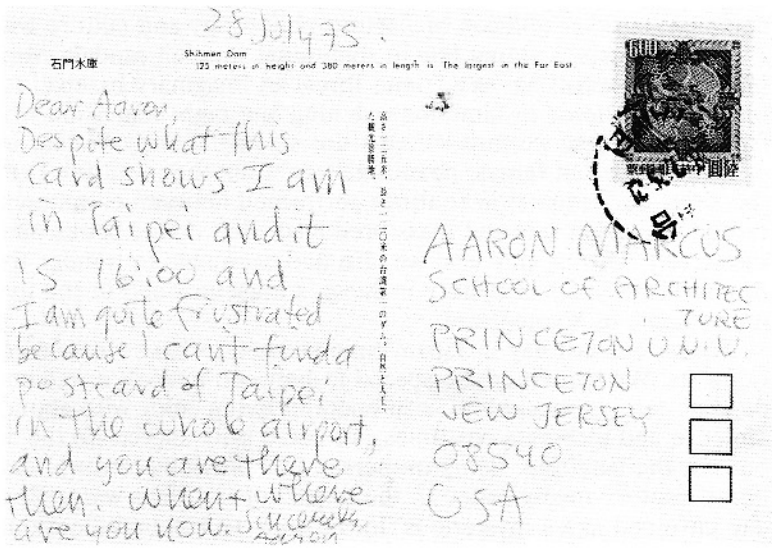 28 July 75.
石門水庫
Shihmen Dam
125 meters in height and 380 meters in length is The largest in the Far East
600
Dear Aaron,
Despite what this
card shows I am
in Taipei and it
is 16:00 and
I am quite frustrated
because I can't find a
postcard of Taipei
in the whole airport,
and you are there
then. When + where
are you now. Sincerely
Aaron
AARON MARCUS
SCHOOL OF ARCHITEC
TURE
PRINCETON UNIV.
PRINCETON
NEW JERSEY
08540
USA